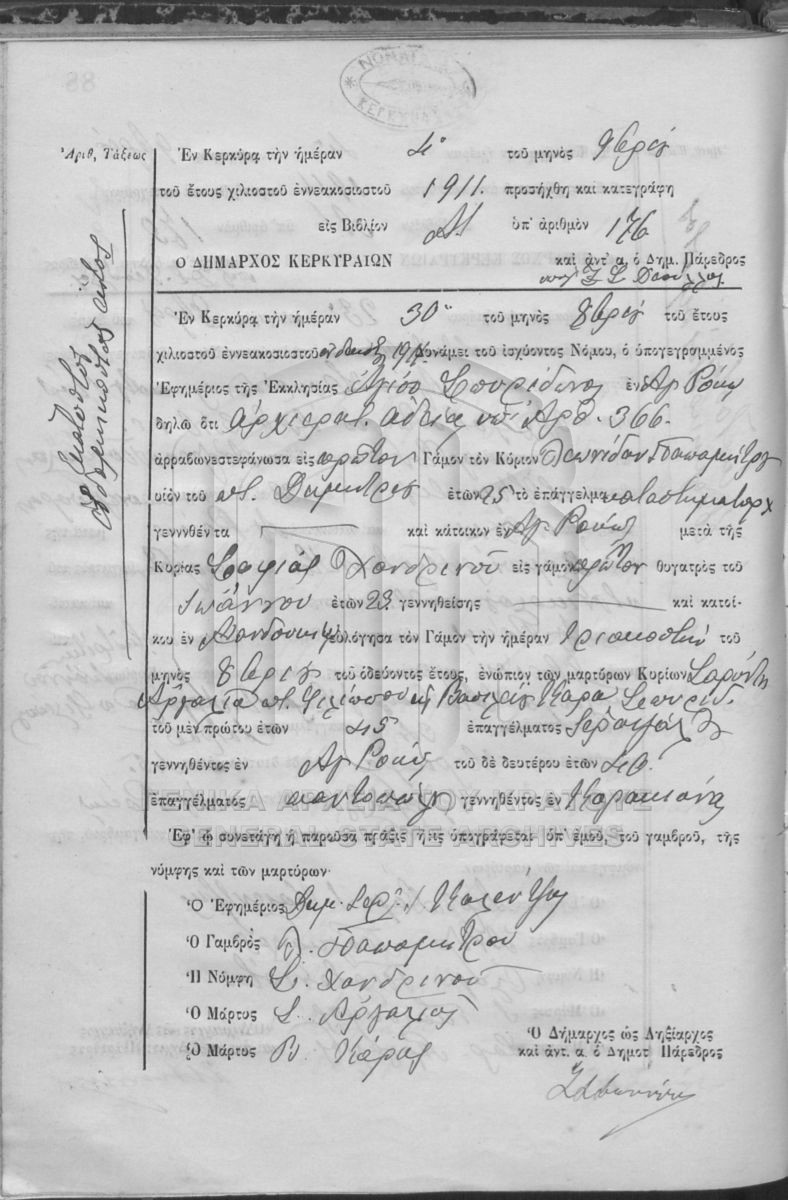 88
ΝΟΜΑΡ
ΚΕΡΚΥΡΑΣ
Ἀριθ. Τάξεως
Ἐν Κερκύρᾳ τὴν ἡμέραν 4 τοῦ μηνὸς 9βρίου
τοῦ ἔτους χιλιοστοῦ ἐννεακοσιοστοῦ 1911. προσήχθη καὶ κατεγράφη
εἰς Βιβλίον ὑπ' ἀριθμὸν 176
Ο ΔΗΜΑΡΧΟΣ ΚΕΡΚΥΡΑΙΩΝ καὶ ἀντ' α. ὁ Δημ. Πάρεδρος
Ἐν Κερκύρᾳ τὴν ἡμέραν 30 τοῦ μηνὸς 8βρίου τοῦ ἔτους
χιλιοστοῦ ἐννεακοσιοστοῦ ἑνδεκάτου 1911 δυνάμει τοῦ ἰσχύοντος Νόμου, ὁ ὑπογεγραμμένος
Ἐφημέριος τῆς Ἐκκλησίας Ἁγίου Σπυρίδωνος ἐν Ἁγ Ρόκῳ
δηλῶ ὅτι ἀρχιερατ. ἀδείᾳ ὑπ' Ἀρθ. 366.
ἀρραβωνεστεφάνωσα εἰς πρῶτον Γάμον τὸν Κύριον Λεωνίδαν Παπαμήτρου
υἱὸν τοῦ ποτ. Δημητρίου ἐτῶν 25 τὸ ἐπάγγελμα καταστηματάρχ
γεννηθέντα καὶ κάτοικον ἐν Ἁγ Ρόκῳ μετὰ τῆς
Κυρίας Σοφίας Χονδρινοῦ εἰς γάμον πρῶτον θυγατρὸς τοῦ
Ἰωάννου ἐτῶν 23 γεννηθείσης καὶ κατοί-
κου ἐν Μανδουκίῳ εὐλόγησα τὸν Γάμον τὴν ἡμέραν τριακοστὴν τοῦ
μηνὸς 8βρίου τοῦ ὁδεύοντος ἔτους, ἐνώπιον τῶν μαρτύρων Κυρίων
ποτ. Φιλίππου καὶ Βασιλείου Καρᾶ Σπυρίδ.
τοῦ μὲν πρώτου ἐτῶν 45 ἐπαγγέλματος
γεννηθέντος ἐν Ἁγ Ρόκῳ τοῦ δὲ δευτέρου ἐτῶν 40.
ἐπαγγέλματος παντοπώλου γεννηθέντος ἐν Κορακιάνα
Ἐφ' ᾧ συνετάγη ἡ παροῦσα πρᾶξις ἥτις ὑπογράφεται ὑπ' ἐμοῦ, τοῦ γαμβροῦ, τῆς
νύμφης καὶ τῶν μαρτύρων·
Ὁ Ἐφημέριος Δημ. Ἱερ.
Ὁ Γαμβρὸς Λ. Παπαμήτρου
Ἡ Νύμφη Σ. Χονδρινοῦ
Ὁ Μάρτυς Σ.
Ὁ Μάρτυς Β Καρᾶς
Ὁ Δήμαρχος ὡς Ληξίαρχος
καὶ ἀντ. α. ὁ Δημοτ Πάρεδρος
ΓΕΝΙΚΑ ΑΡΧΕΙΑ ΤΟΥ ΚΡΑΤΟΥΣ
GENERAL STATE ARCHIVES